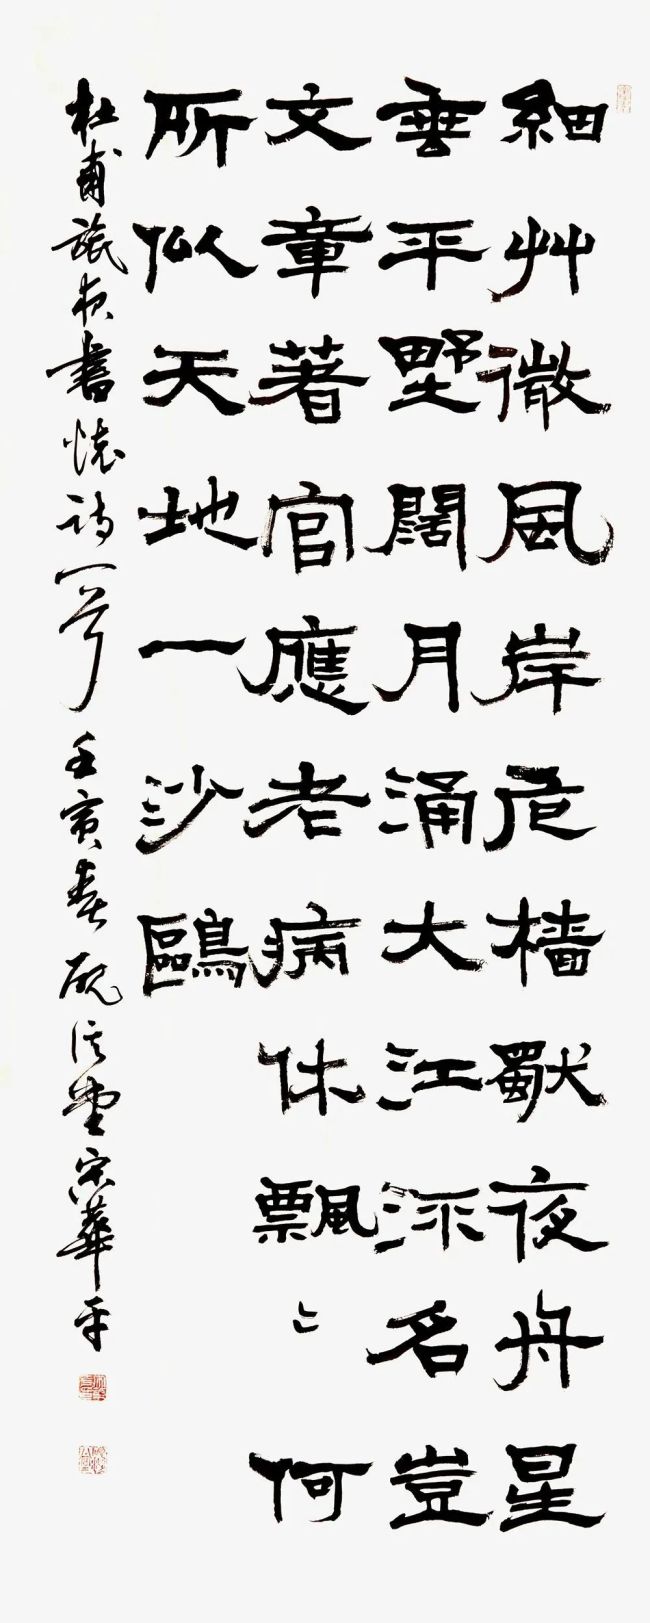 細艸微風岸危檣獨夜舟星
垂平野闊月涌大江流名豈
文章著官應老病休飄〻何
所似天地一沙鷗
杜甫旅夜書懷詩一首 壬寅春 硯 堂 宋華平